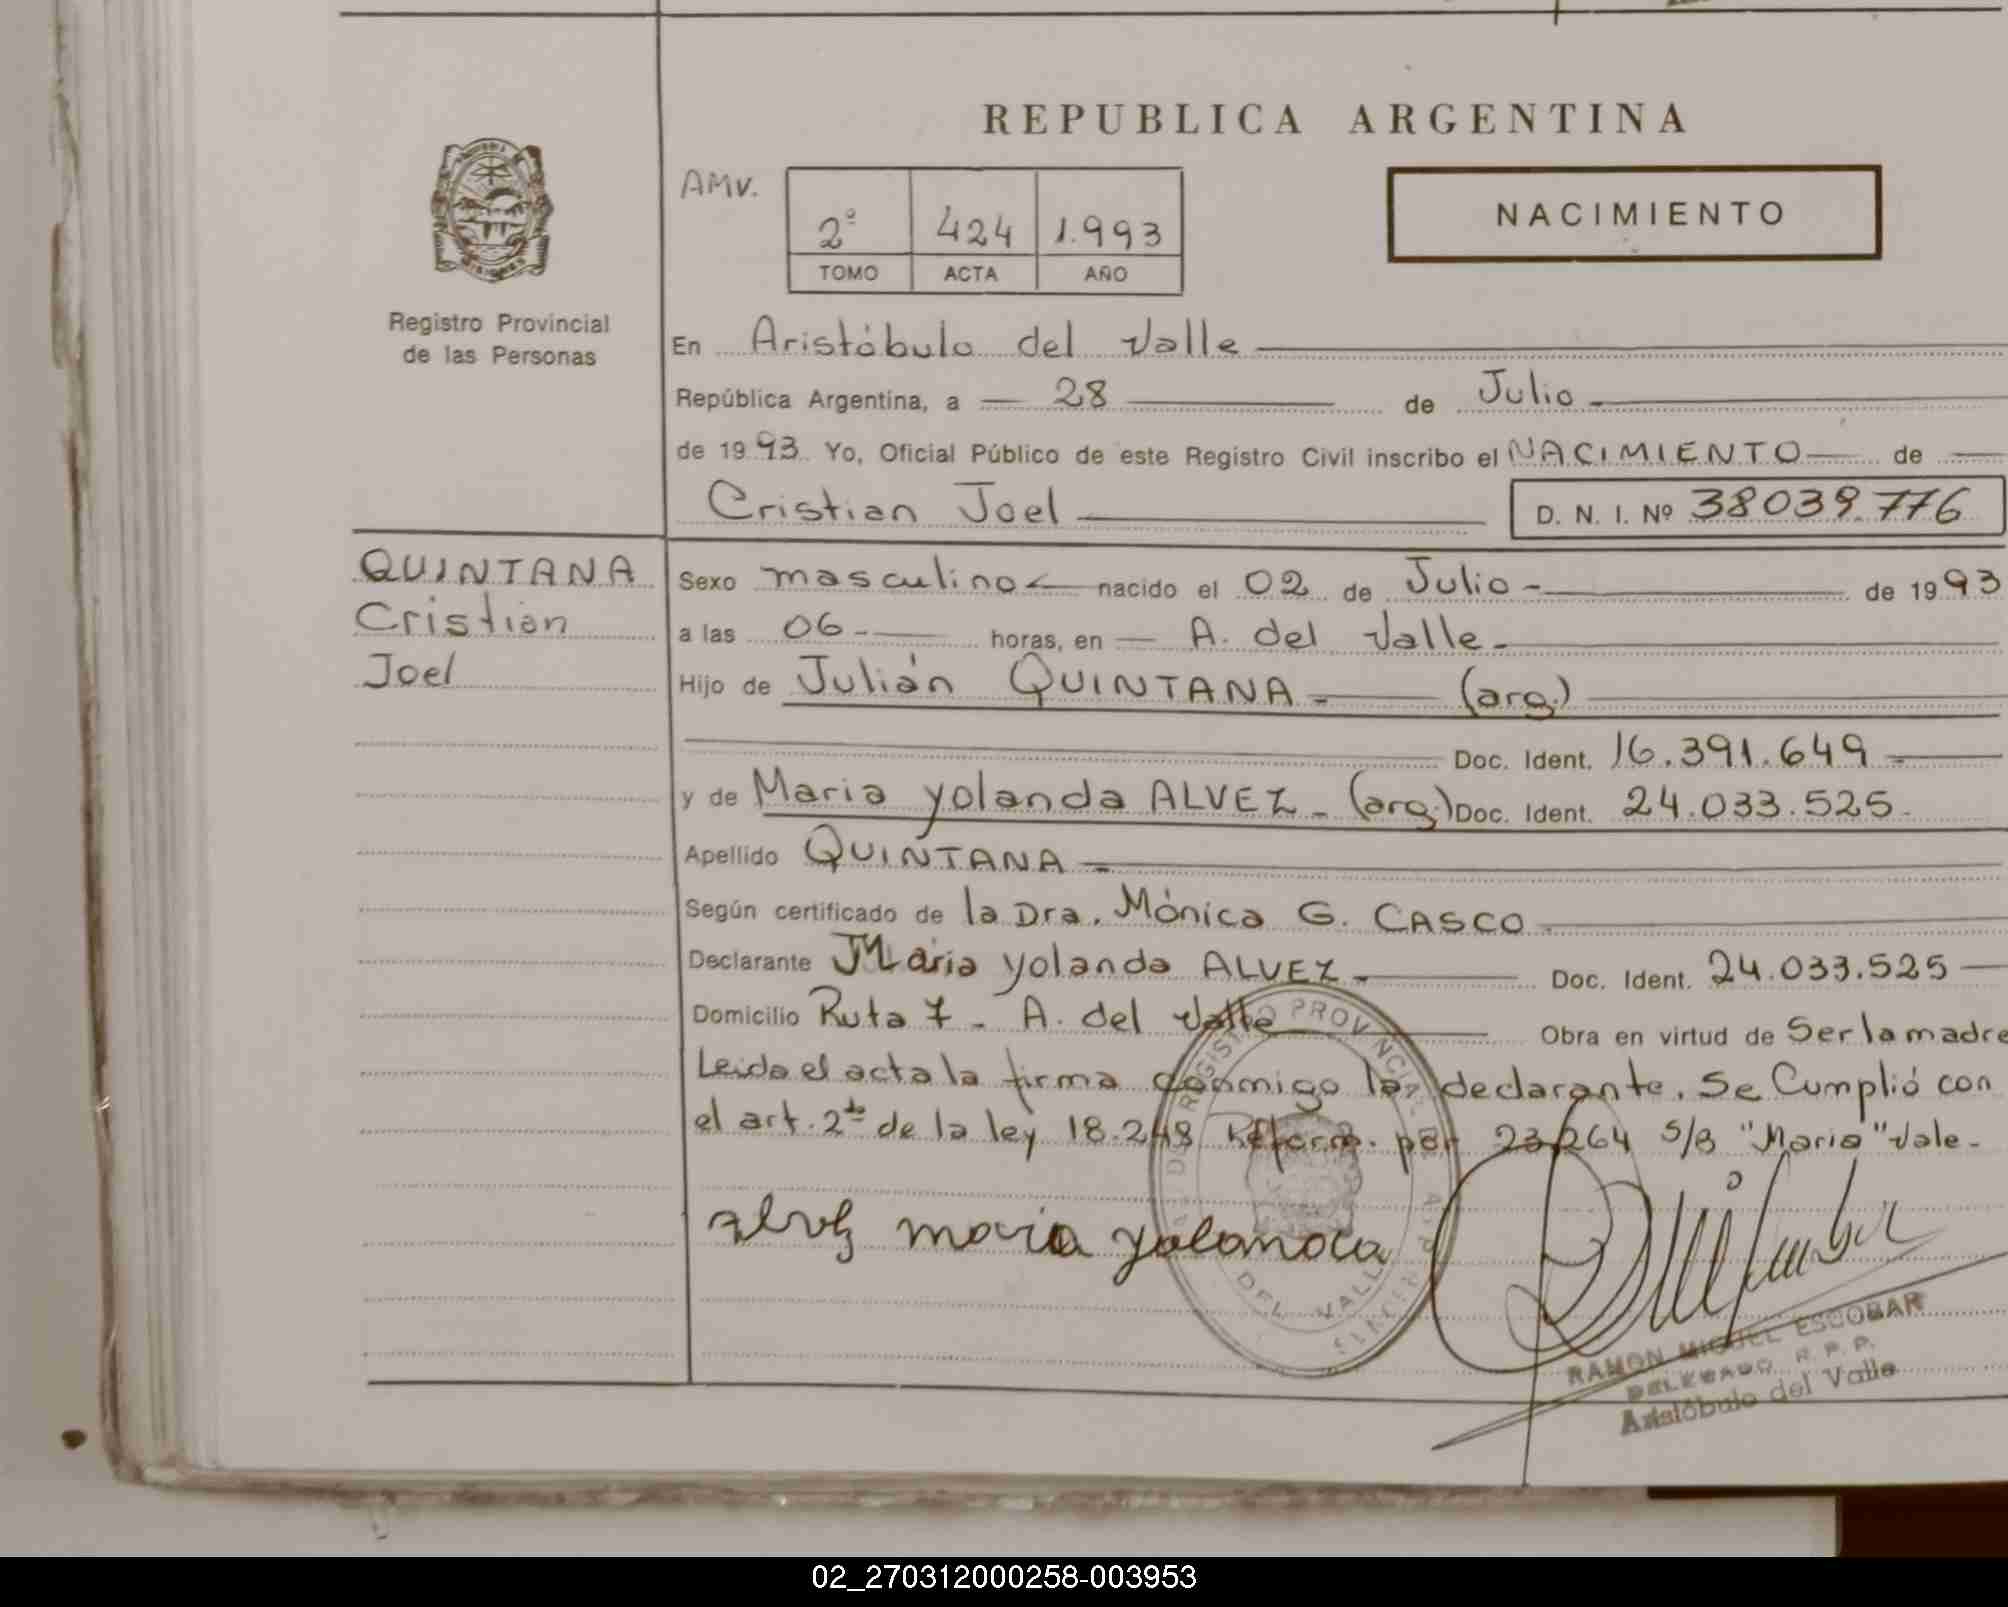 REPUBLICA ARGENTINA
AMV.
2º 424 1.993
TOMO ACTA AÑO
NACIMIENTO
Registro Provincial
de las Personas
En Aristóbulo del Valle
República Argentina, a 28 de Julio
de 1993 Yo, Oficial Público de este Registro Civil inscribo el NACIMIENTO de
Cristian Joel D. N. I. Nº 38039.776
QUINTANA
Cristian
Joel
Sexo masculino nacido el 02 de Julio de 1993
a las 06 horas, en A. del Valle
Hijo de Julián QUINTANA (arg.)
Doc. Ident. 16.391.649
y de Maria Yolanda ALVEZ (arg.) Doc. Ident. 24.033.525
Apellido QUINTANA
Según certificado de la Dra. Mónica G. CASCO
Declarante Maria Yolanda ALVEZ Doc. Ident. 24.033.525
Domicilio Ruta 7 - A. del Valle Obra en virtud de Ser la madre
Leida el acta la firma conmigo la declarante. Se Cumplió con
el art. 2do de la ley 18.248 Reform. por 23.264 S/B "Maria" Vale-
REGISTRO PROVINCIAL DE LAS
DEL VALLE
alvez maria yolanda
RAMON MIGUEL ESCOBAR
DELEGADO R. P. P.
Aristóbulo del Valle
02_270312000258-003953